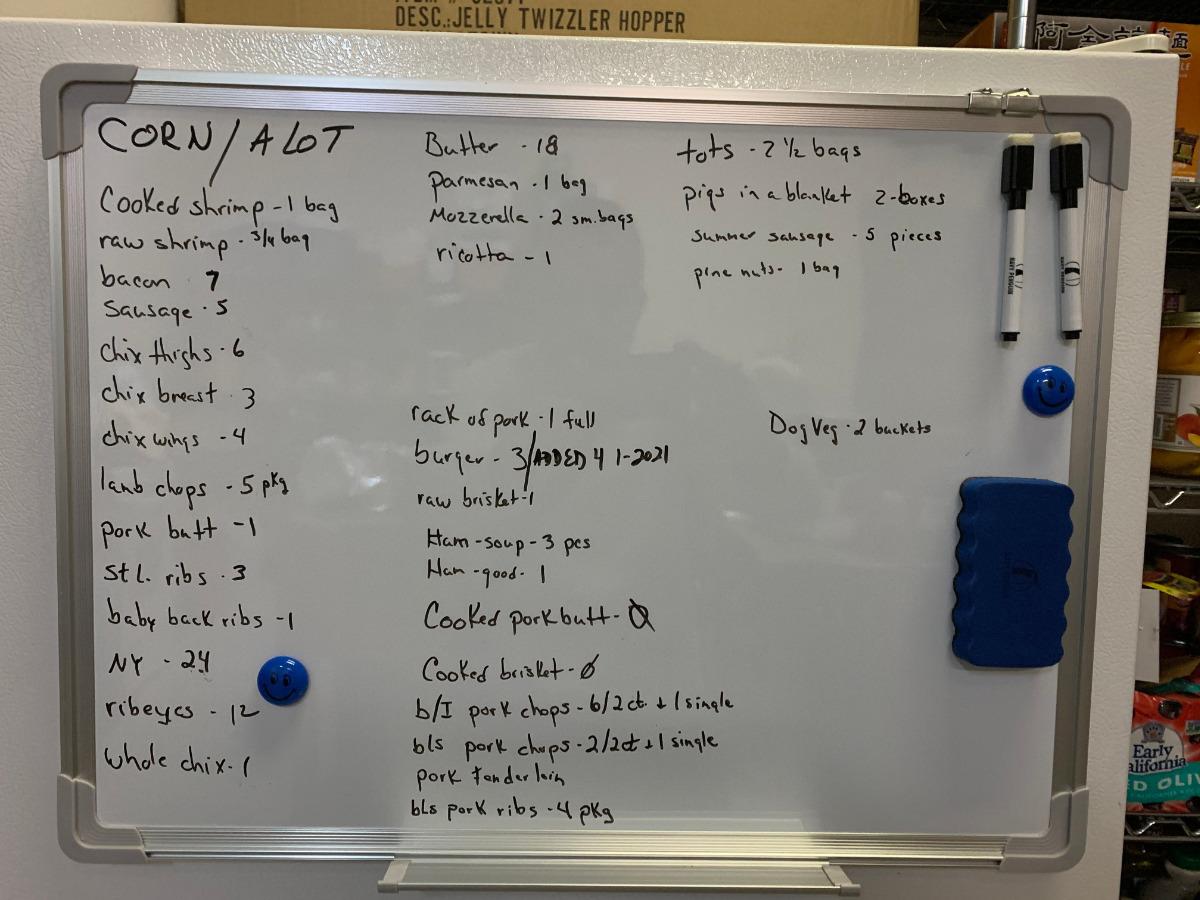 DESC.:JELLY TWIZZLER HOPPER
CORN/A LOT
Cooked shrimp - 1 bag
raw shrimp - 3/4 bag
bacon 7
Sausage - 5
chix thighs - 6
chix breast - 3
chix wings - 4
lamb chops - 5 pkg
pork butt - 1
St L. ribs - 3
baby back ribs - 1
NY - 24
ribeyes - 12
whole chix - 1
Butter - 18
Parmesan - 1 bag
Mozzerella - 2 sm. bags
ricotta - 1
rack of pork - 1 full
burger - 3/ADDED 4 1-2021
raw brisket - 1
Ham - soup - 3 pcs
Ham - good - 1
Cooked pork butt - 0
Cooked brisket - 0
b/I pork chops - 6/2ct + 1 single
bls pork chops - 2/2ct + 1 single
pork tenderloin
bls pork ribs - 4 pkg
tots - 2 1/2 bags
pigs in a blanket 2-boxes
summer sausage - 5 pieces
pine nuts - 1 bag
Dog Veg - 2 buckets
Early
California